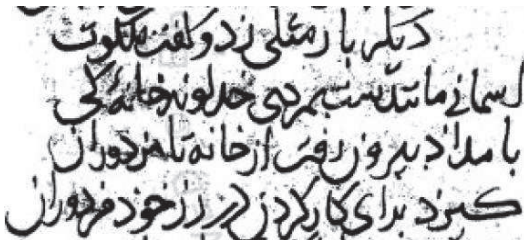 دیگر بار مثلی زد و گفت ملکوت
اسمانی مانندست بمردی خداوند خانه کی
بامداد بیرون رفت از خانه تا مزدوران
کیرد برای کار کردن در رز خود مزدوران